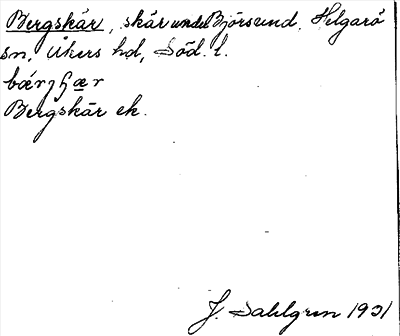 Bergskär, skär under Björsund, Helgarö
sn, Åkers hd, Söd. l.
Bergskär ek.
J. Sahlgren 1931